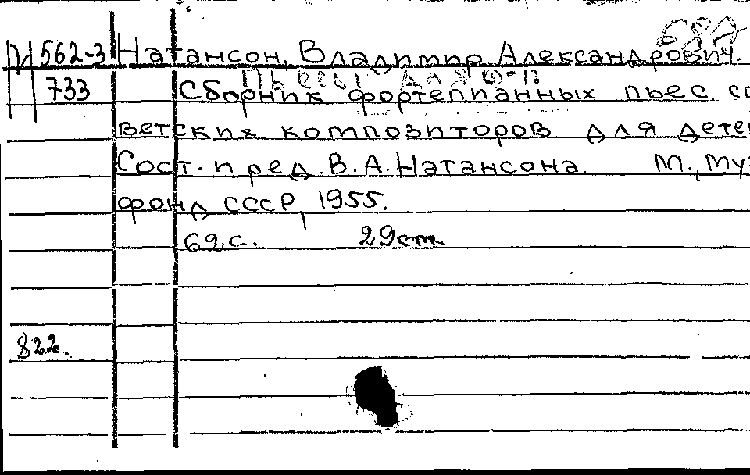 И 562-3 Натансон, Владимир Александрович.
733 Сборник фортепианных пьес со
ветских композиторов для детей
Сост. и ред. В.А. Натансона. М., Муз
фонд СССР, 1955.
62с. 29см.
822.